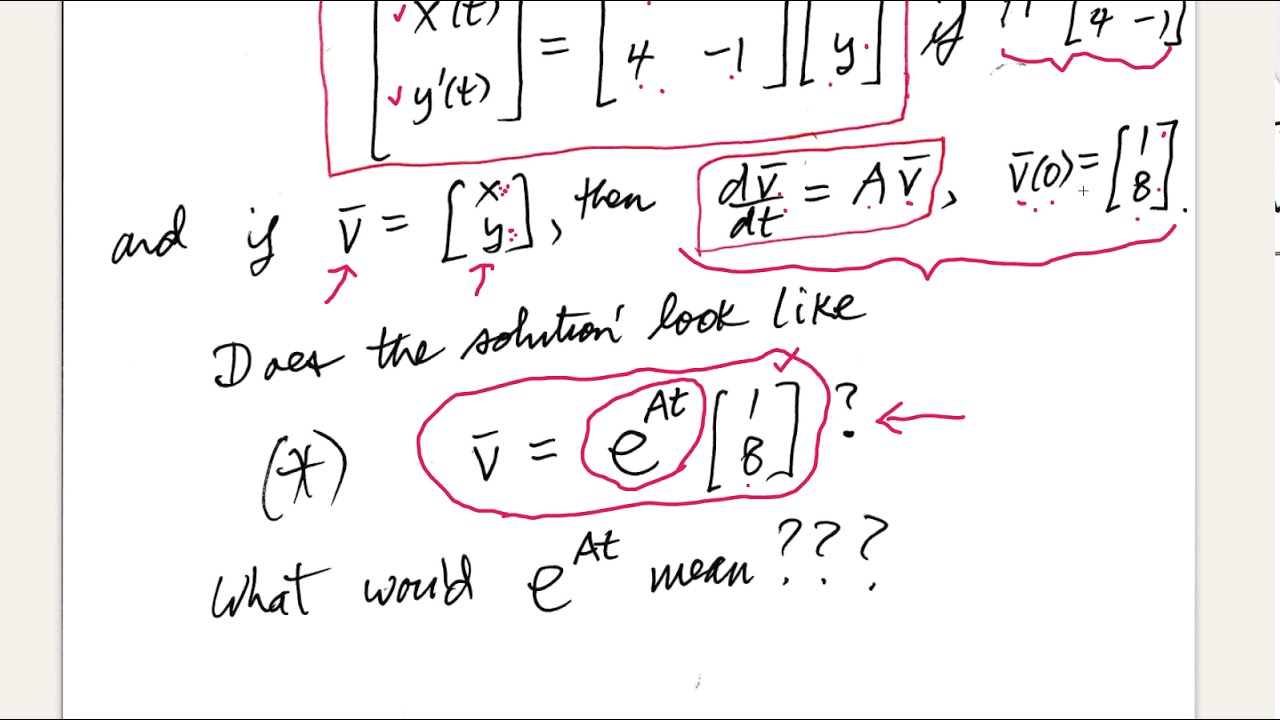 x'(t)
y'(t) = [4 -1] [y] if [4 -1]
and if v̄ = [x y], then dv̄/dt = A v̄, v̄(0) = [1 8].
Does the solution look like
(*) v̄ = e^{At} [1 8] ?
What would e^{At} mean ???